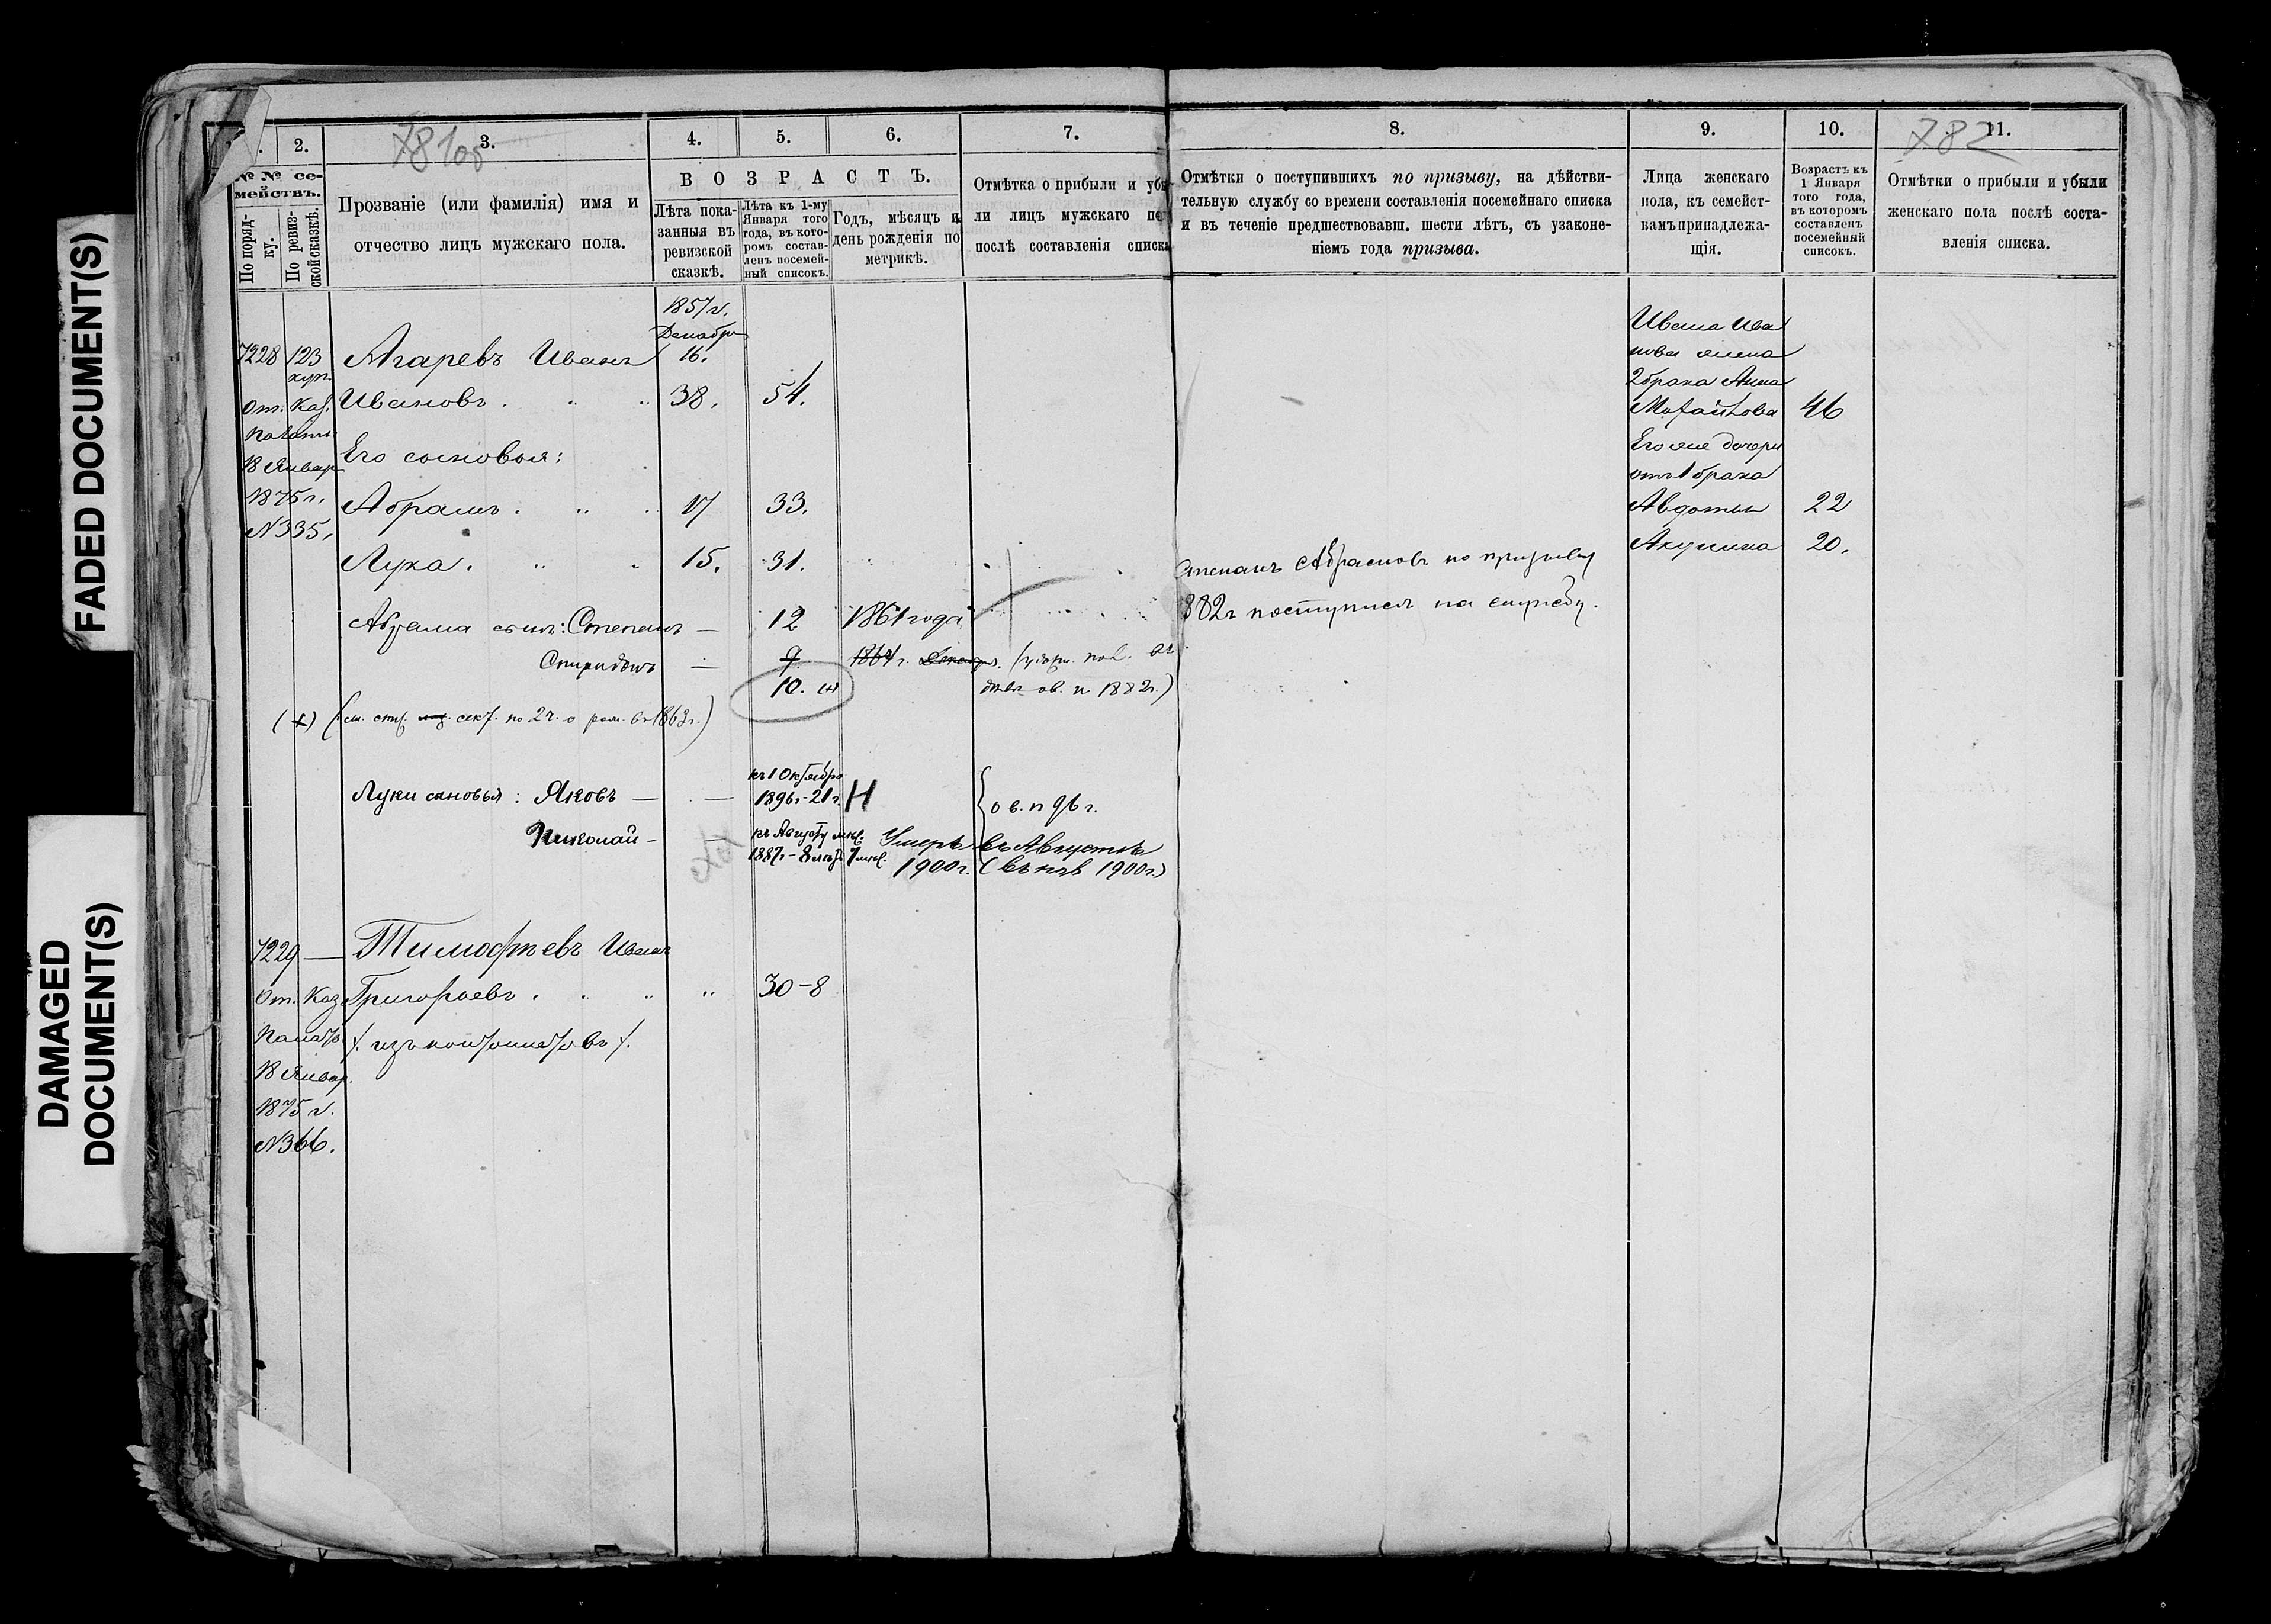 FADED DOCUMENT(S)
DAMAGED
DOCUMENT(S)
781об
782
2. 3. 4. 5. 6. 7. 8. 9. 10. 11.
№ № се-
мействъ.
По поряд-
ку.
По ревиз-
ской сказкѣ.
Прозваніе (или фамилія) имя и
отчество лицъ мужскаго пола.
ВОЗРАСТЪ.
Лѣта пока-
занныя въ
ревизской
сказкѣ.
Лѣта къ 1-му
Января того
года, въ кото-
ромъ состав-
ленъ посемей-
ный списокъ.
Годъ, мѣсяцъ и
день рожденія по
метрикѣ.
Отмѣтка о прибыли и убы-
ли лицъ мужскаго по
послѣ составленія списка
Отмѣтки о поступившихъ по призыву, на дѣйстви-
тельную службу со времени составленія посемейнаго списка
и въ теченіе предшествовавш. шести лѣтъ, съ узаконе-
ніемъ года призыва.
Лица женскаго
пола, къ семейст-
вамъ принадлежа-
щія.
Возрастъ къ
1 Января
того года,
въ которомъ
составленъ
посемейный
списокъ.
Отмѣтки о прибыли и убыли
женскаго пола послѣ соста-
вленія списка.
1857 г.
Декабря
16.
7228 123 Агаревъ Иванъ
Ивановъ 38. 54.
От. Каз.
Палаты
18 Январ
1875 г.
№ 335.
Его сыновья:
Абрамъ 17 33.
Лука 15. 31.
Абрама сынъ: Степанъ — 12 1861 года
Спиридонъ — 9 1864 г.
10. (х)
ов. п. 1882 г.)
(х) (см. по 2 ч. о рож. въ 1863 г.)
Степанъ Абрамовъ по призыву
882 г поступилъ на службу.
Ивана Ива
нова жена
2 брака Анна
46
Его же дочери
отъ 1 брака
Авдотья 22
Акулина 20.
Луки сыновья: Яковъ — —
къ 1 Октября
1896 г. - 21 г. Н
о в. п 96 г.
Николай —
къ Августу мѣс.
1887 г - 8 лѣтъ 7 мѣс.
Умеръ въ Августѣ
1900 г. (въ 1900 г.)
7229 — Тимофѣевъ Иванъ
Григорьевъ 30-8
/. изъ кантонистовъ /.
От. Каз
Палаты
18 Январ.
1875 г.
№ 366.